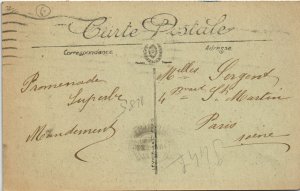 Carte Postale
Correspondance
Adresse
Promenade
Superbe
Mandement
Melles Sergent
4 Bvard St Martin
Paris
Seine